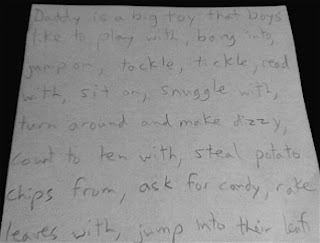 Daddy is a big toy that boys
like to play with, bang into,
jump on, tackle, tickle, read
with, sit on, snuggle with,
turn around and make dizzy,
count to ten with, steal potato
chips from, ask for candy, rake
leaves with, jump into their leaf